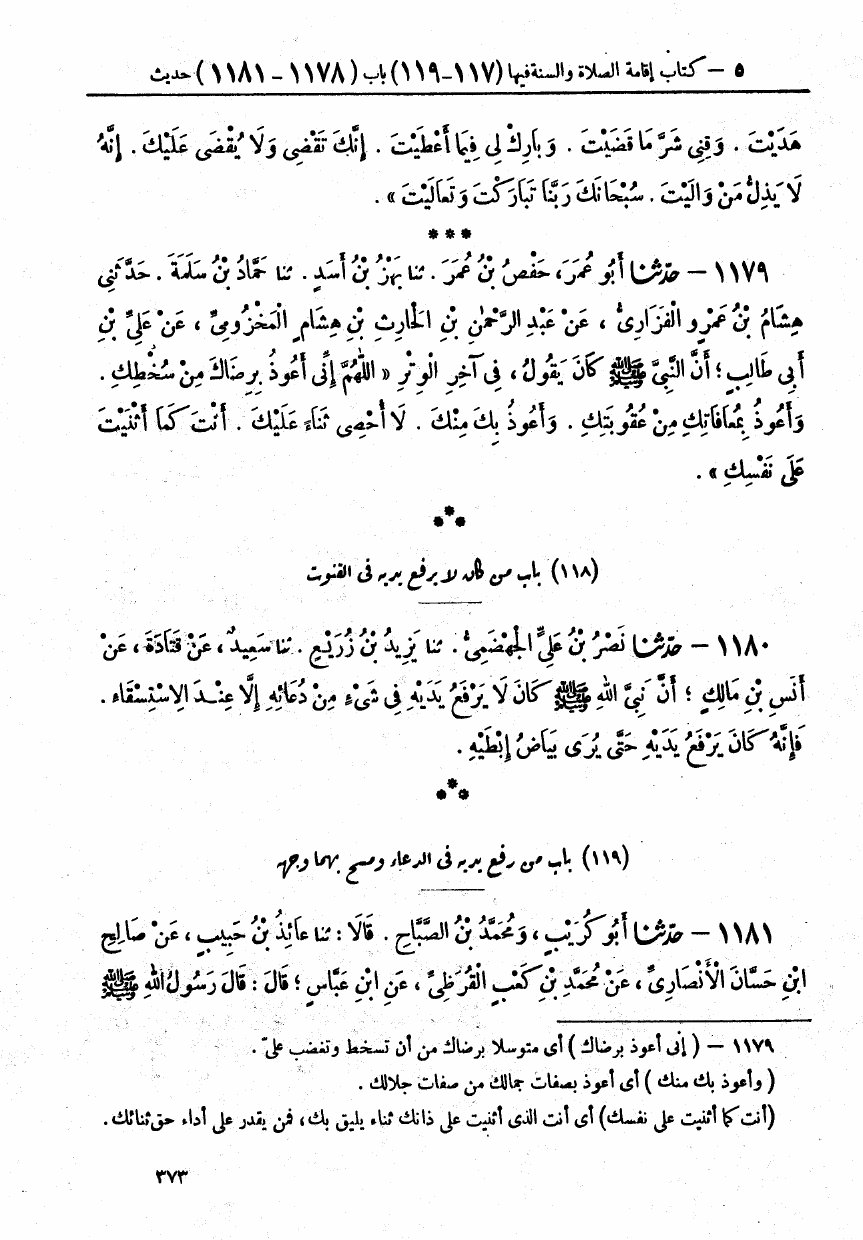 ٥ – كتاب إقامة الصلاة والسنة فيها (١١٧-١١٩) باب (١١٧٨ - ١١٨١) حديث
هَدَيْتَ . وَقِنِى شَرَّ مَا قَضَيْتَ . وَبَارِكْ لِى فِيمَا أَعْطَيْتَ . إِنَّكَ تَقْضِى وَلَا يُقْضَى عَلَيْكَ . إِنَّهُ
لَا يَذِلُّ مَنْ وَالَيْتَ . سُبْحَانَكَ رَبَّنَا تَبَارَكْتَ وَتَعَالَيْتَ » .
***
١١٧٩ – حدّثنا أَبُو عُمَرَ، حَفْصُ بْنُ عُمَرَ . ثنا بَهْزُ بْنُ أَسَدٍ . ثنا حَمَّادُ بْنُ سَلَمَةَ . حَدَّثَنِى
هِشَامُ بْنُ عَمْرٍو الْفَزَارِىُّ ، عَنْ عَبْدِ الرَّحْمٰنِ بْنِ الْحَارِثِ بْنِ هِشَامٍ الْمَخْزُومِىِّ ، عَنْ عَلِىِّ بْنِ
أَبِى طَالِبٍ ؛ أَنَّ النَّبِىَّ ﷺ كَانَ يَقُولُ ، فِى آخِرِ الْوِتْرِ « اللّٰهُمَّ إِنِّى أَعُوذُ بِرِضَاكَ مِنْ سُخْطِكَ .
وَأَعُوذُ بِمُعَافَاتِكَ مِنْ عُقُوبَتِكَ . وَأَعُوذُ بِكَ مِنْكَ . لَا أُحْصِى ثَنَاءً عَلَيْكَ . أَنْتَ كَمَا أَثْنَيْتَ
عَلَى نَفْسِكَ » .
***
(١١٨) باب من كان لا يرفع يديه فى القنوت
١١٨٠ – حدّثنا نَصْرُ بْنُ عَلِىٍّ الْجَهْضَمِىُّ . ثنا يَزِيدُ بْنُ زُرَيْعٍ . ثنا سَعِيدٌ ، عَنْ قَتَادَةَ ، عَنْ
أَنَسِ بْنِ مَالِكٍ ؛ أَنَّ نَبِىَّ اللهِ ﷺ كَانَ لَا يَرْفَعُ يَدَيْهِ فِى شَىْءٍ مِنْ دُعَائِهِ إِلَّا عِنْدَ الِاسْتِسْقَاء .
فَإِنَّهُ كَانَ يَرْفَعُ يَدَيْهِ حَتَّى يُرَى بَيَاضُ إِبْطَيْهِ .
***
(١١٩) باب من رفع يديه فى الدعاء ومسح بهما وجهه
١١٨١ – حدّثنا أَبُو كُرَيْبٍ ، وَمُحَمَّدُ بْنُ الصَّبَّاحِ . قَالَا : ثنا عَائِذُ بْنُ حَبِيبٍ ، عَنْ صَالِحِ
ابْنِ حَسَّانَ الْأَنْصَارِىِّ ، عَنْ مُحَمَّدِ بْنِ كَعْبٍ الْقُرَظِىِّ ، عَنِ ابْنِ عَبَّاسٍ ؛ قَالَ : قَالَ رَسُولُ اللهِ ﷺ
١١٧٩ – ( إنى أعوذ برضاك ) أى متوسلا برضاك من أن تسخط وتغضب علىّ .
( وأعوذ بك منك ) أى أعوذ بصفات جمالك من صفات جلالك .
(أنت كما أثنيت على نفسك) أى أنت الذى أثنيت على ذاتك ثناء يليق بك، فمن يقدر على أداء حق ثنائك .
٣٧٣